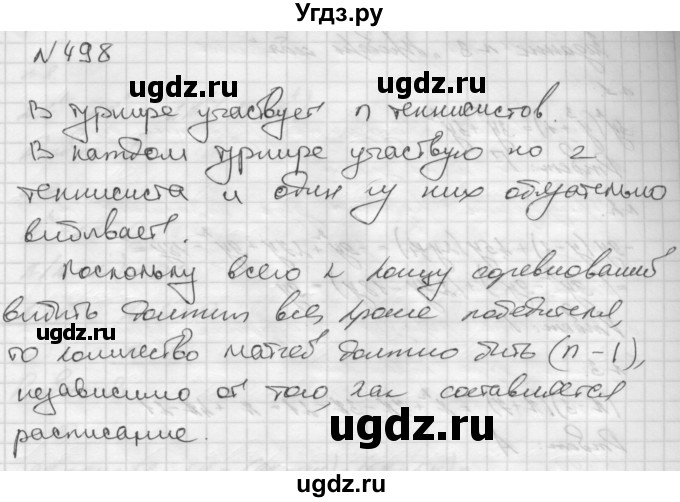 Угдз.ру
N 498
ugdz.ru ugdz.ru
В турнире участвует n теннисистов.
В каждом турнире участвую по 2
теннисиста и один из них обязательно
выбывает.
ugdz.ru ugdz.ru
Поскольку всего к концу соревнований
выбыть должны все, кроме победителя,
то количество матчей должно быть (n-1),
независимо от того, как составляется
расписание.
ugdz.ru
Угдз.ру